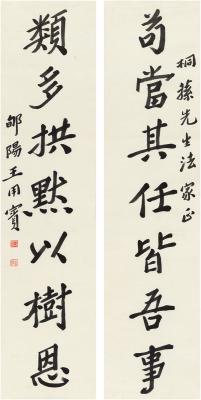 桐蓀先生法家正
苟當其任皆吾事
類多拱默以樹恩
郇陽王用賓